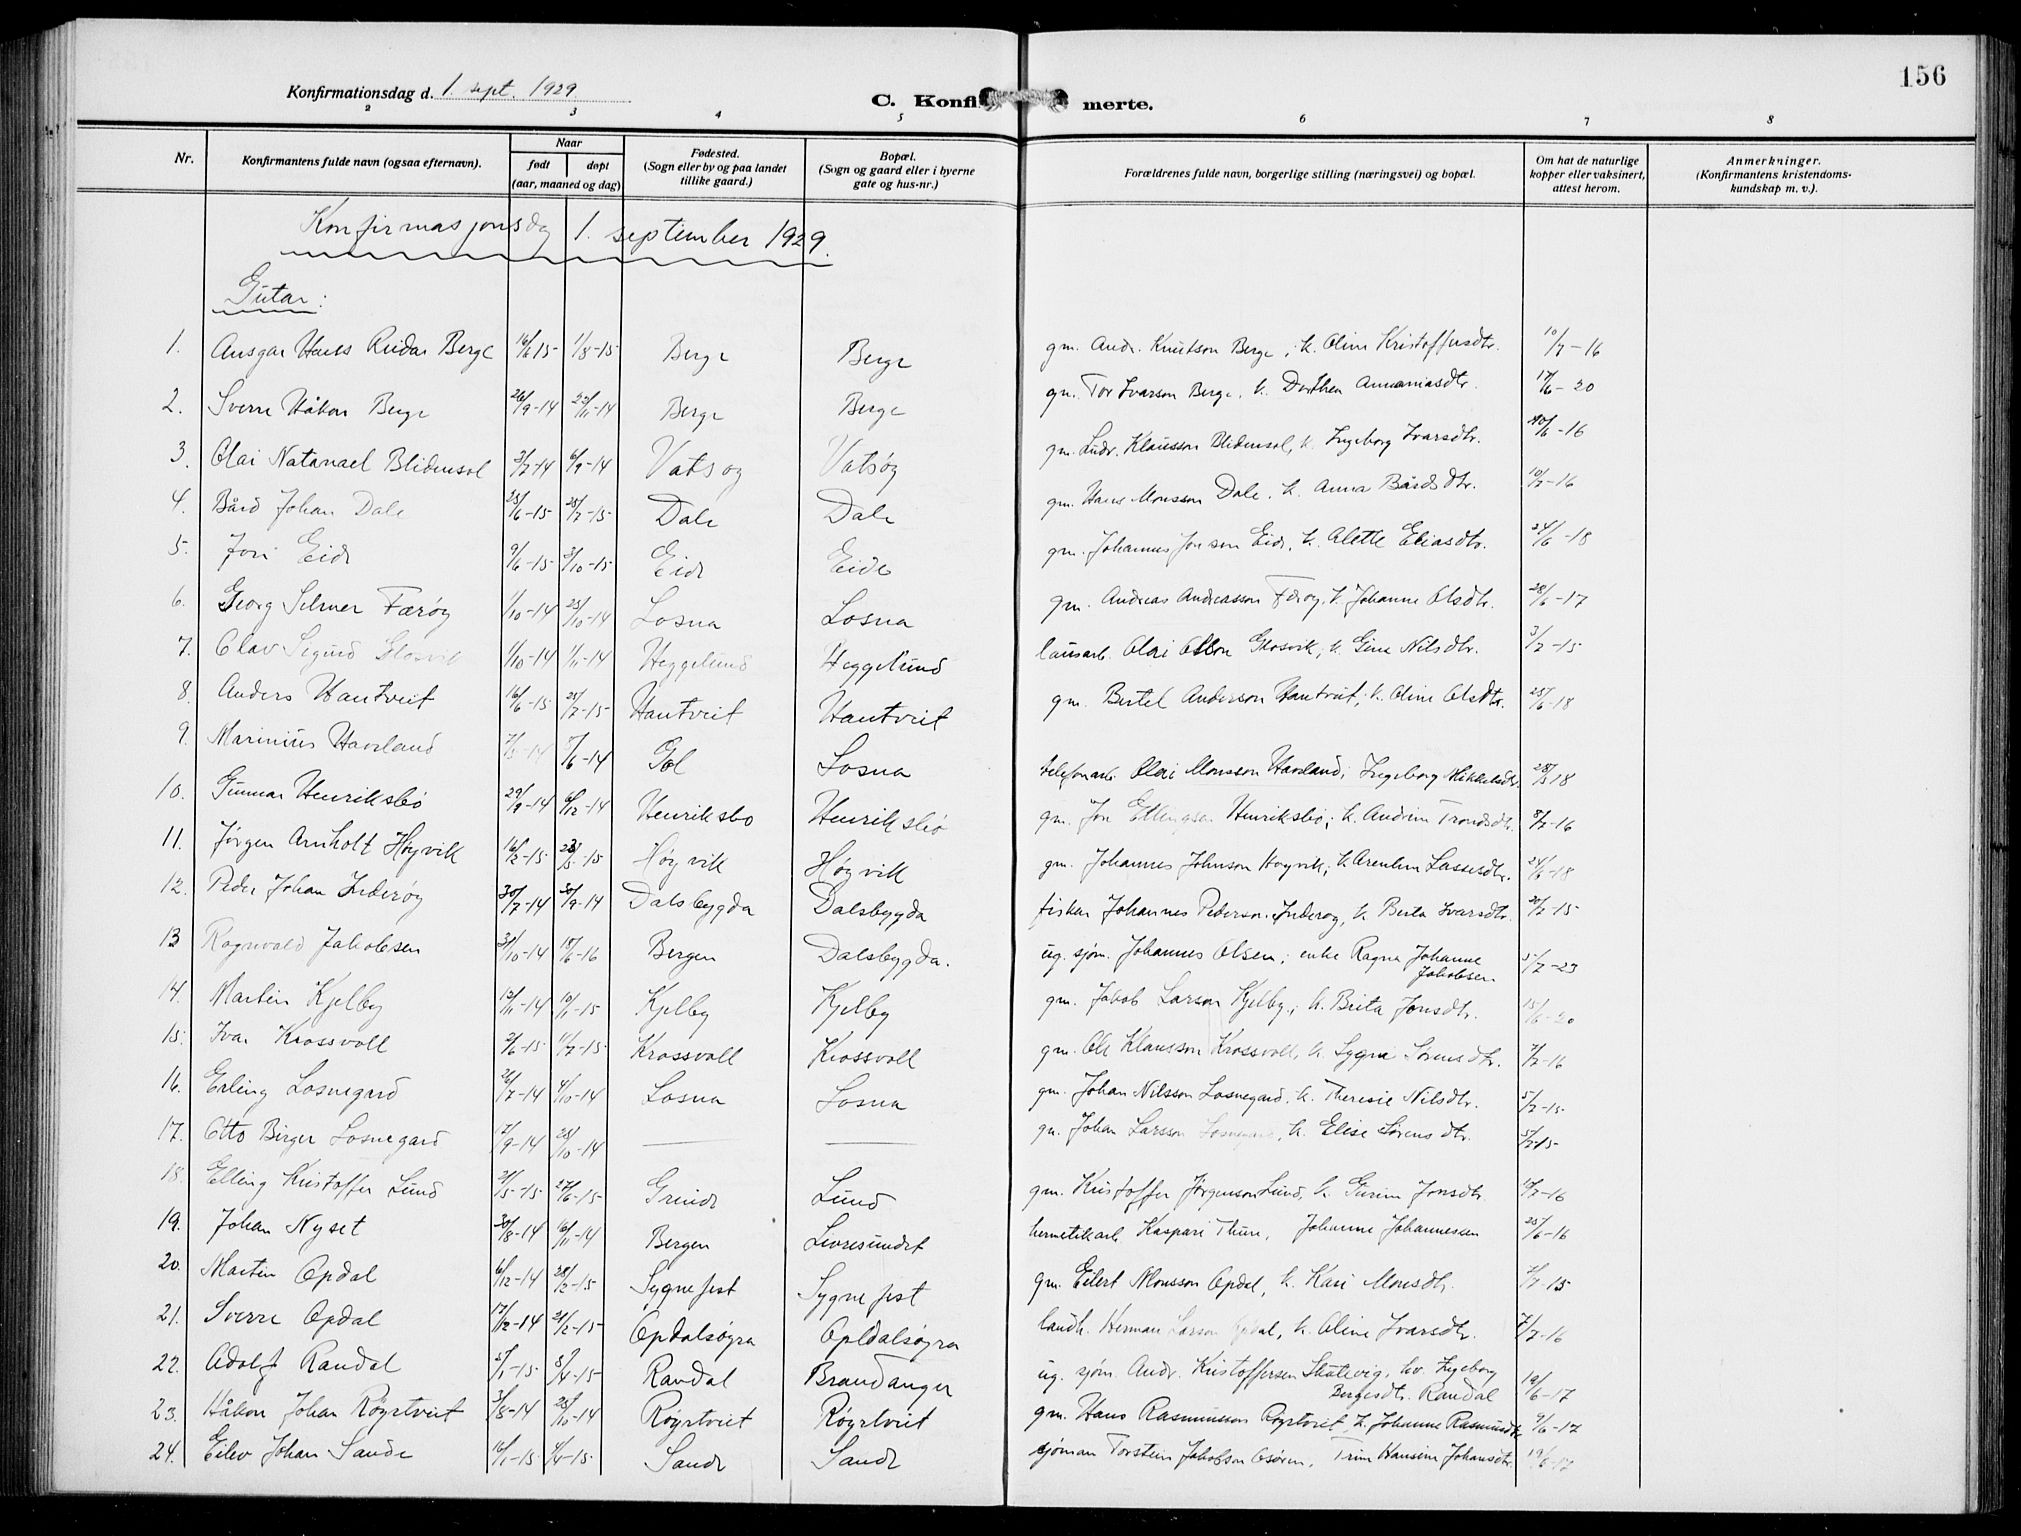 156
Konfirmationsdag d. 1. sept. 1929.
C. Konfi merte.
2 3 4 5 6 7 8
Nr.
Konfirmantens fulde navn (ogsaa efternavn).
Naar
født døpt
(aar, maaned og dag)
Fødested.
(Sogn eller by og paa landet
tillike gaard.)
Bopæl.
(Sogn og gaard eller i byerne
gate og hus-nr.)
Forældrenes fulde navn, borgerlige stilling (næringsvei) og bopæl.
Om hat de naturlige
kopper eller vaksinert,
attest herom.
Anmerkninger.
(Konfirmantens kristendoms-
kundskap m. v.).
Konfirmasjonsdag 1. september 1929.
Gutar:
1. Ansgar Hans Reidar Berge 16/6 15 1/8-15 Berge Berge gm. Andr. Knutson Berge, k. Oline Kristoffersdtr. 10/7-16
2. Sverre Håkon Berge 26/9-14 22/11-14 Berge Berge gm. Tor Ivarson Berge, k. Dorthea Annaniasdtr. 17/6-20
3. Olai Natanael Blidensol 3/7-14 6/9-14 Vatsøy Vatsøy gm. Ludv. Klausson Blidensol, k. Ingeborg Ivarsdtr. 20/6-16
4. Bård Johan Dale 25/6-15 25/7-15 Dale Dale gm. Hans Monsson Dale, k. Anna Bårdsdtr. 10/7-16
5. Jon Eide 9/6-15 3/10-15 Eide Eide gm. Johannes Jonson Eide, k. Alette Eliasdtr. 24/6-18
6. Georg Selmer Færøy 1/10-14 25/10-14 Losna Losna gm. Andreas Andreasson Færøy, k. Johanne Olsdtr. 28/6-17
7. Olav Sigurd Glosvik 1/10-14 1/11-14 Heggelund Heggelund lausarb. Olai Olson Glosvik, k. Gine Nilsdtr. 3/7-15
8. Anders Hantveit 16/6-15 25/7-15 Hantveit Hantveit gm. Bertel Anderson Hantveit, k. Oline Olsdtr. 25/6-18
9. Marinius Havsland 7/6-14 Gol Losna telefonarb. Olai Monsson Havsland, Ingeborg Mikkelsdtr. 28/5 18
10. Gunnar Henriksbø 29/9-14 6/12-14 Henriksbø Henriksbø gm. Jon Ellingsen Henriksbø, k. Andrine Trondsdtr. 8/7-16
11. Jørgen Arnholt Høyvik 16/2-15 23/5-15 Høyvik Høyvik gm. Johannes Johnson Høyvik, k. Arentine Lassesdtr. 24/6-18
12. Peder Johan Inderøy 30/7-14 30/9-14 Dalsbygda Dalsbygda fisker Johannes Pederson Inderøy, k. Berta Ivarsdtr. 20/7-15
13 Ragnvald Jakobsen 31/10-14 18/6-16 Bergen Dalsbygda. ug. sjøm. Johannes Olsen; enke Ragna Johanne
Jakobsen 5/7-23
14. Martin Kjelby 15/11-14 10/1-15 Kjelby Kjelby gm. Jakob Larson Kjelby, k. Brita Jonsdtr. 15/6-20
15. Ivar Krossvoll 2/6-15 11/7-15 Krossvoll Krossvoll gm. Ole Klausson Krossvoll, k. Sygna Sørensdtr. 7/7-16
16. Erling Losnegard 26/7-14 4/10-14 Losna Losna gm. Johan Nilsson Losnegard, k. Theresie Nilsdtr. 5/7-15
17. Otto Birger Losnegard 17/9-14 25/10-14 — — gm. Johan Larsson Losnegard, k. Elise Sørensdtr. 5/7-15
18. Elling Kristoffer Lund 21/5-15 27/6-15 Grinde Lund gm. Kristoffer Jørgenson Lund, k. Gurine Jonsdtr. 10/7-16
19. Johan Nyset 30/8-14 16/11-14 Bergen Livresundet hermetikarb. Kaspari Thune, Johanne Johannessen 25/6-16
20. Martin Opdal 6/12-14 28/2-15 Sygnefest Sygnefest gm. Eilert Monsson Opdal, k. Kari Monsdtr. 2/7-15
21. Sverre Opdal 17/12-14 21/2-15 Opdalsøyra Opldalsøyra landh. Herman Larson Opdal, k. Oline Ivarsdtr. 7/7-16
22. Adolf Randal 5/1-15 5/4-15 Randal Brandanger ug. sjøm. Andr. Kristoffersen Skutevig, kv. Ingeborg
Bergesdtr. Randal 19/6-17
23. Håkon Johan Røyrtveit 3/8-14 25/10-14 Røyrtveit Røyrtveit gm. Hans Rasmusson Røyrtveit, k. Johanne Rasmusdtr. 9/6-17
24. Eilev Johan Sande 16/1-15 4/4-15 Sande Sande sjøman Torstein Jakobson Osøren, Trine Hansine Johansdtr. 19/6-17